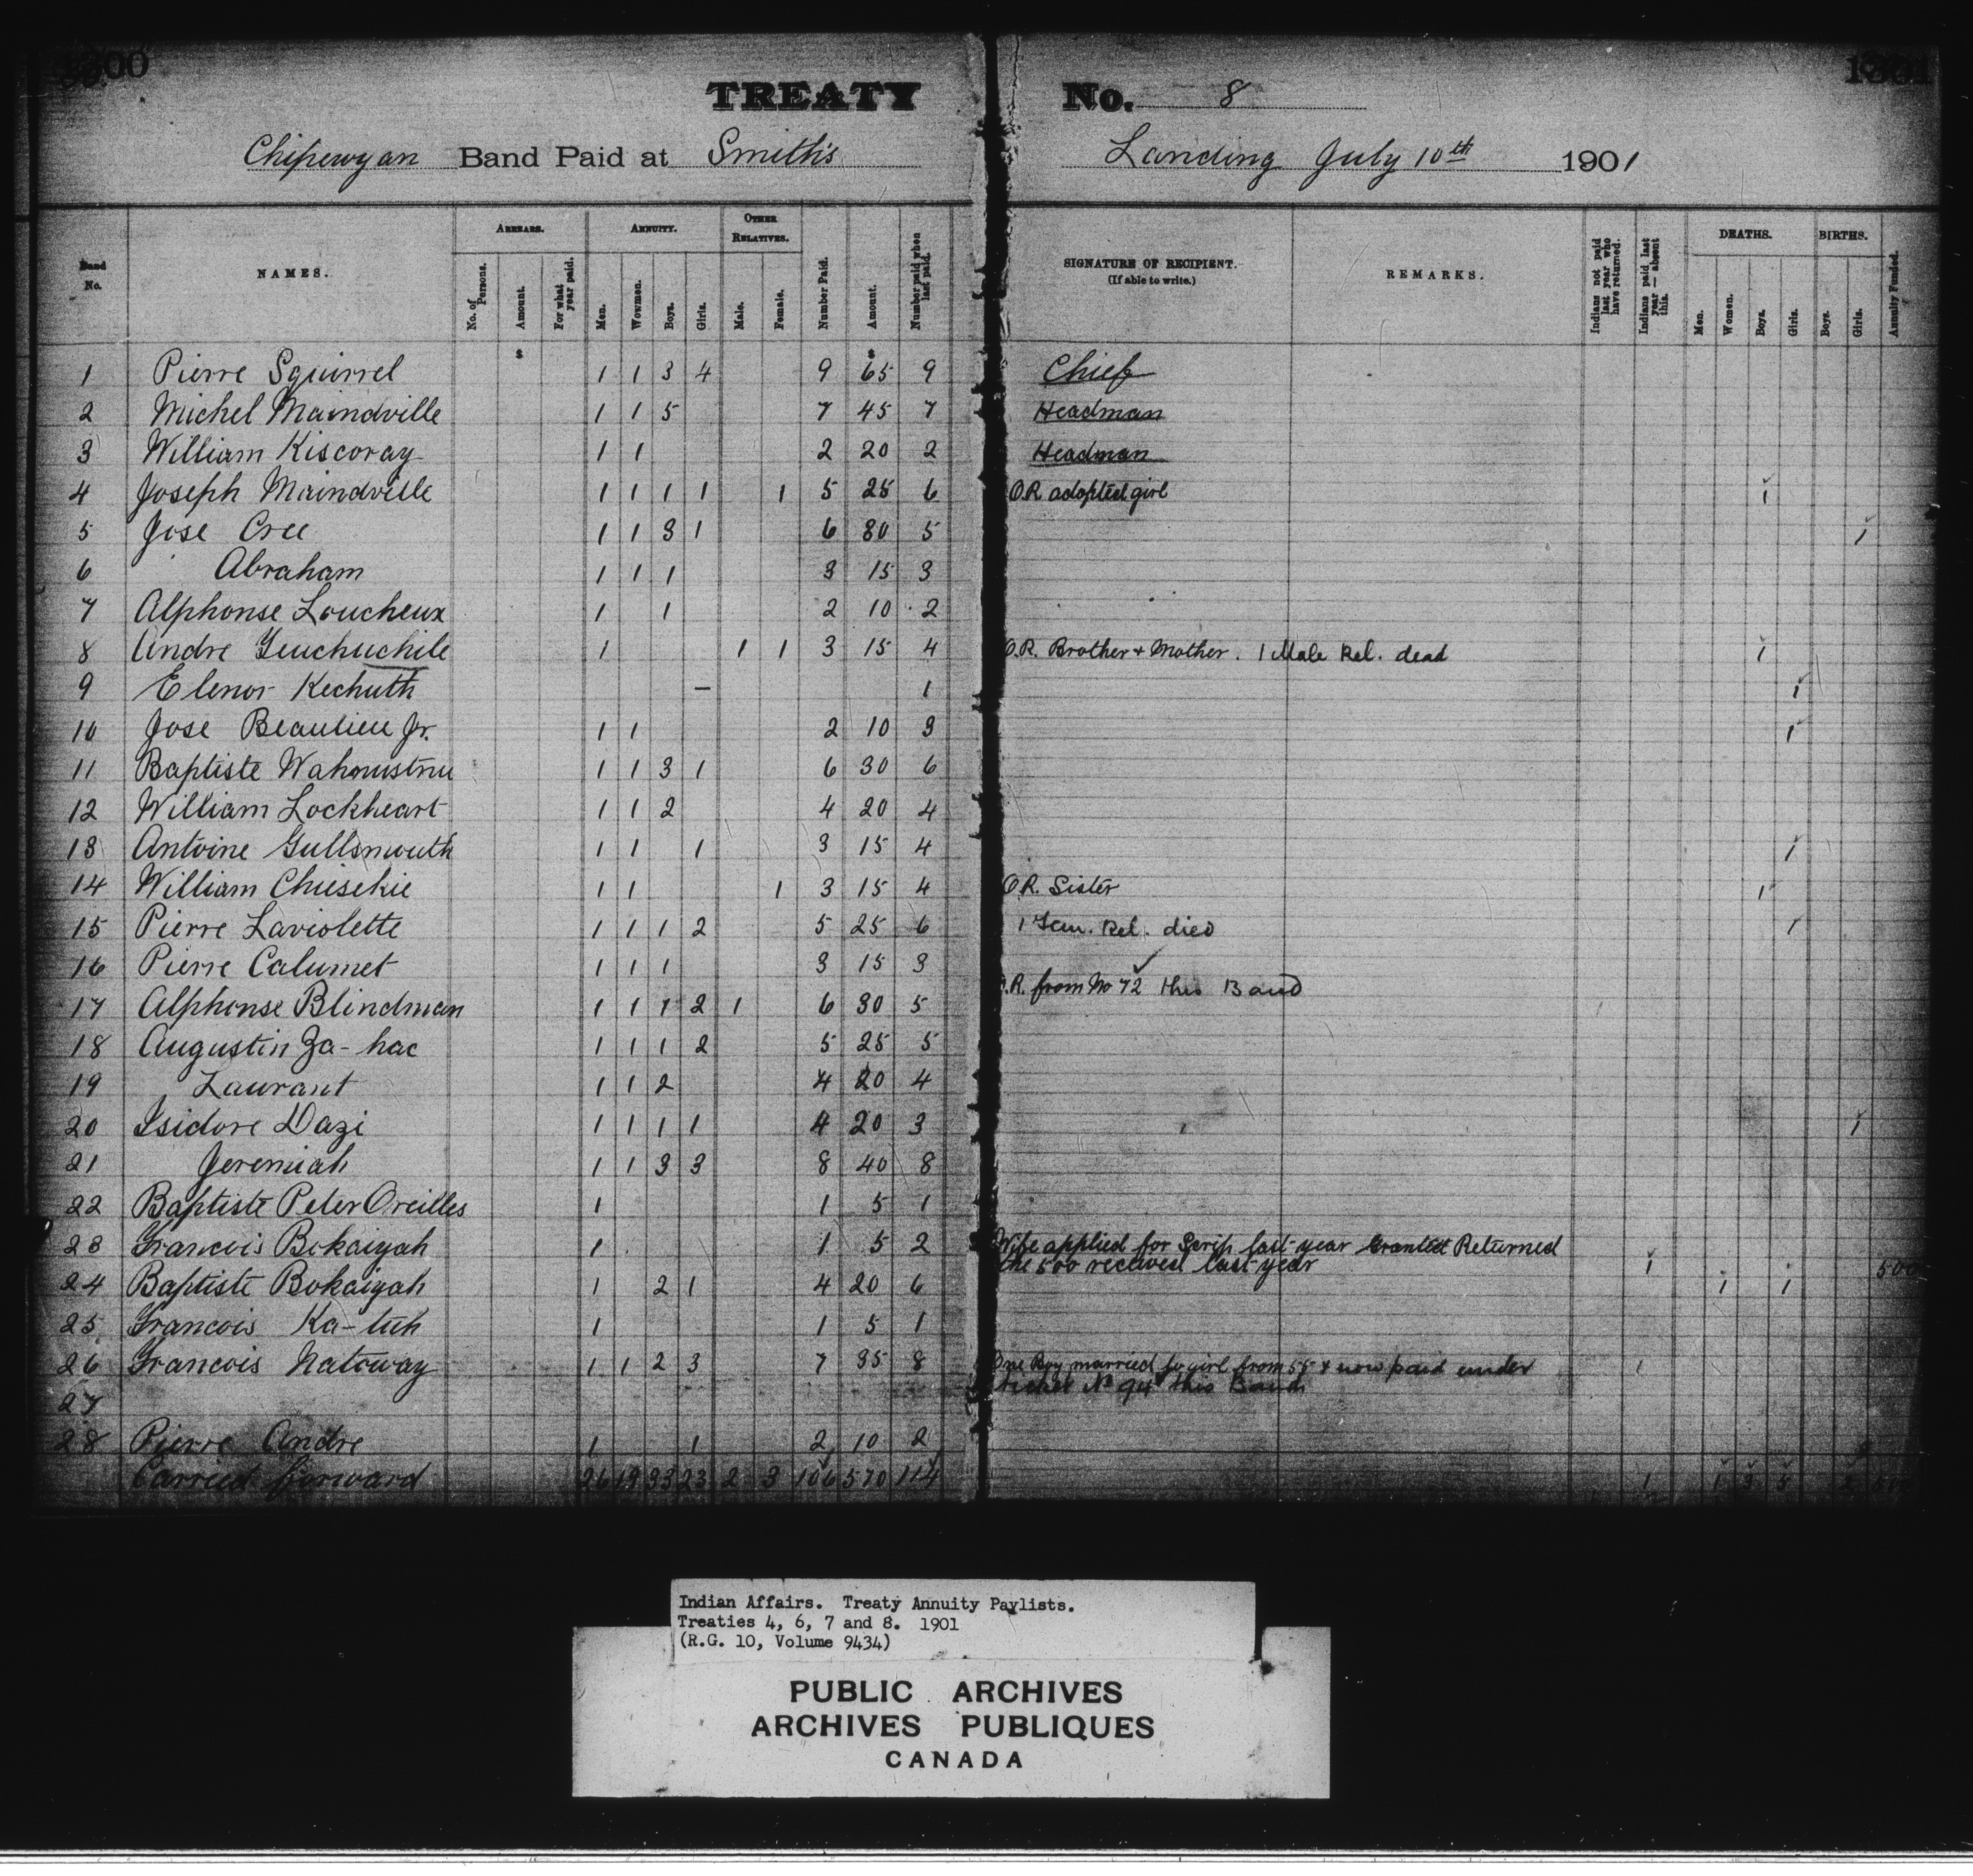 TREATY No. 8
Chipewyan Band Paid at Smith's Landing July 10th 1901
Band No. NAMES. ARREARS. ANNUITY. OTHER RELATIVES. Number Paid. Amount. Number paid when last paid. SIGNATURE OF RECIPIENT. (If able to write.) REMARKS. Indians not paid last year who have returned. Indians paid last year — absent this. DEATHS. BIRTHS. Annuity Funded.
No. of Persons. Amount. For what year paid. Men. Wowmen. Boys. Girls. Male. Female. Men. Women. Boys. Girls. Boys. Girls.
$ $
1 Pierre Squirrel 1 1 3 4 9 65 9 Chief
2 Michel Maindville 1 1 5 7 45 7 Headman
3 William Kiscoray 1 1 2 20 2 Headman
4 Joseph Maindville 1 1 1 1 1 5 25 6 O.R. adopted girl 1
5 Jose Cree 1 1 3 1 6 30 5 1
6 Abraham 1 1 1 3 15 3
7 Alphonse Loucheux 1 1 2 10 2
8 Andre 1 1 1 3 15 4 O.R. Brother + Mother. 1 Male Rel. dead 1
9 Elenor Kechuth — 1 1
10 Jose Beaulieu Jr. 1 1 2 10 3 1
11 Baptiste 1 1 3 1 6 30 6
12 William Lockheart 1 1 2 4 20 4
13 Antoine Gullsmouth 1 1 1 3 15 4 1
14 William Chusekie 1 1 1 3 15 4 O.R. Sister 1
15 Pierre Laviolette 1 1 1 2 5 25 6 1 Fem. Rel. died 1
16 Pierre Calumet 1 1 1 3 15 3
17 Alphonse Blindman 1 1 1 2 1 6 30 5 O.R. from No 72 this Band
18 Augustin Za-hac 1 1 1 2 5 25 5
19 Laurant 1 1 2 4 20 4
20 Isidore Dazi 1 1 1 1 4 20 3 1
21 Jeremiah 1 1 3 3 8 40 8
22 Baptiste Peter Oreilles 1 1 5 1
23 Francois Bokaiyah 1 1 5 2 Wife applied for Scrip last year Granted Returned
the 500 received last year 1 500
24 Baptiste Bokaiyah 1 2 1 4 20 6 1 1
25 Francois Ka-tuh 1 1 5 1
26 Francois Natoway 1 1 2 3 7 35 8 One Boy married to girl from 55 & now paid under 1
ticket No 94 this Band
27
28 Pierre Andre 1 1 2 10 2
Carried forward 26 19 33 23 2 3 106 570 114 1 1 3 5 2
Indian Affairs. Treaty Annuity Paylists.
Treaties 4, 6, 7 and 8. 1901
(R.G. 10, Volume 9434)
PUBLIC ARCHIVES
ARCHIVES PUBLIQUES
CANADA